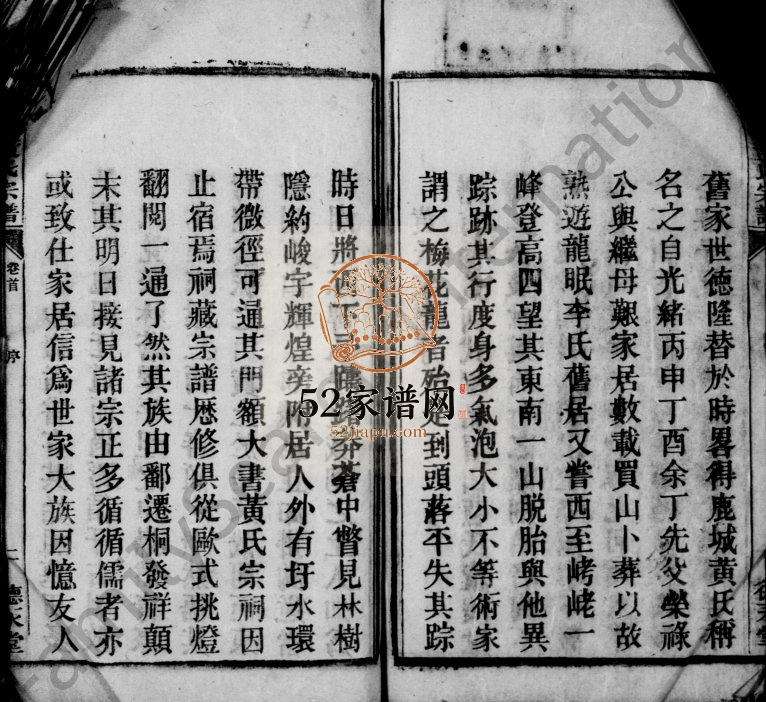 舊家世德隆替於時畧得鹿城黃氏稱
名之自光緒丙申丁酉余丁先父榮祿
公與繼母艱家居數載買山卜葬以故
熟遊龍眠李氏舊居又嘗西至峔峔一
峰登高四望其東南一山脫胎與他異
踪跡其行度身多氣泡大小不等術家
謂之梅花龍者殆是到頭落平失其踪
時日將西下莽蒼中瞥見林樹
隱約峻宇輝煌旁附居人外有圩水環
帶微徑可通其門額大書黃氏宗祠因
止宿焉祠藏宗譜歷修俱從歐式挑燈
翻閱一通了然其族由鄱遷桐發祥顛
末其明日接見諸宗正多循循儒者亦
或致仕家居信爲世家大族因憶友人
氏宗譜
卷首
序
一
德永堂
52家谱网
52jiapu.com
FamilySearch International